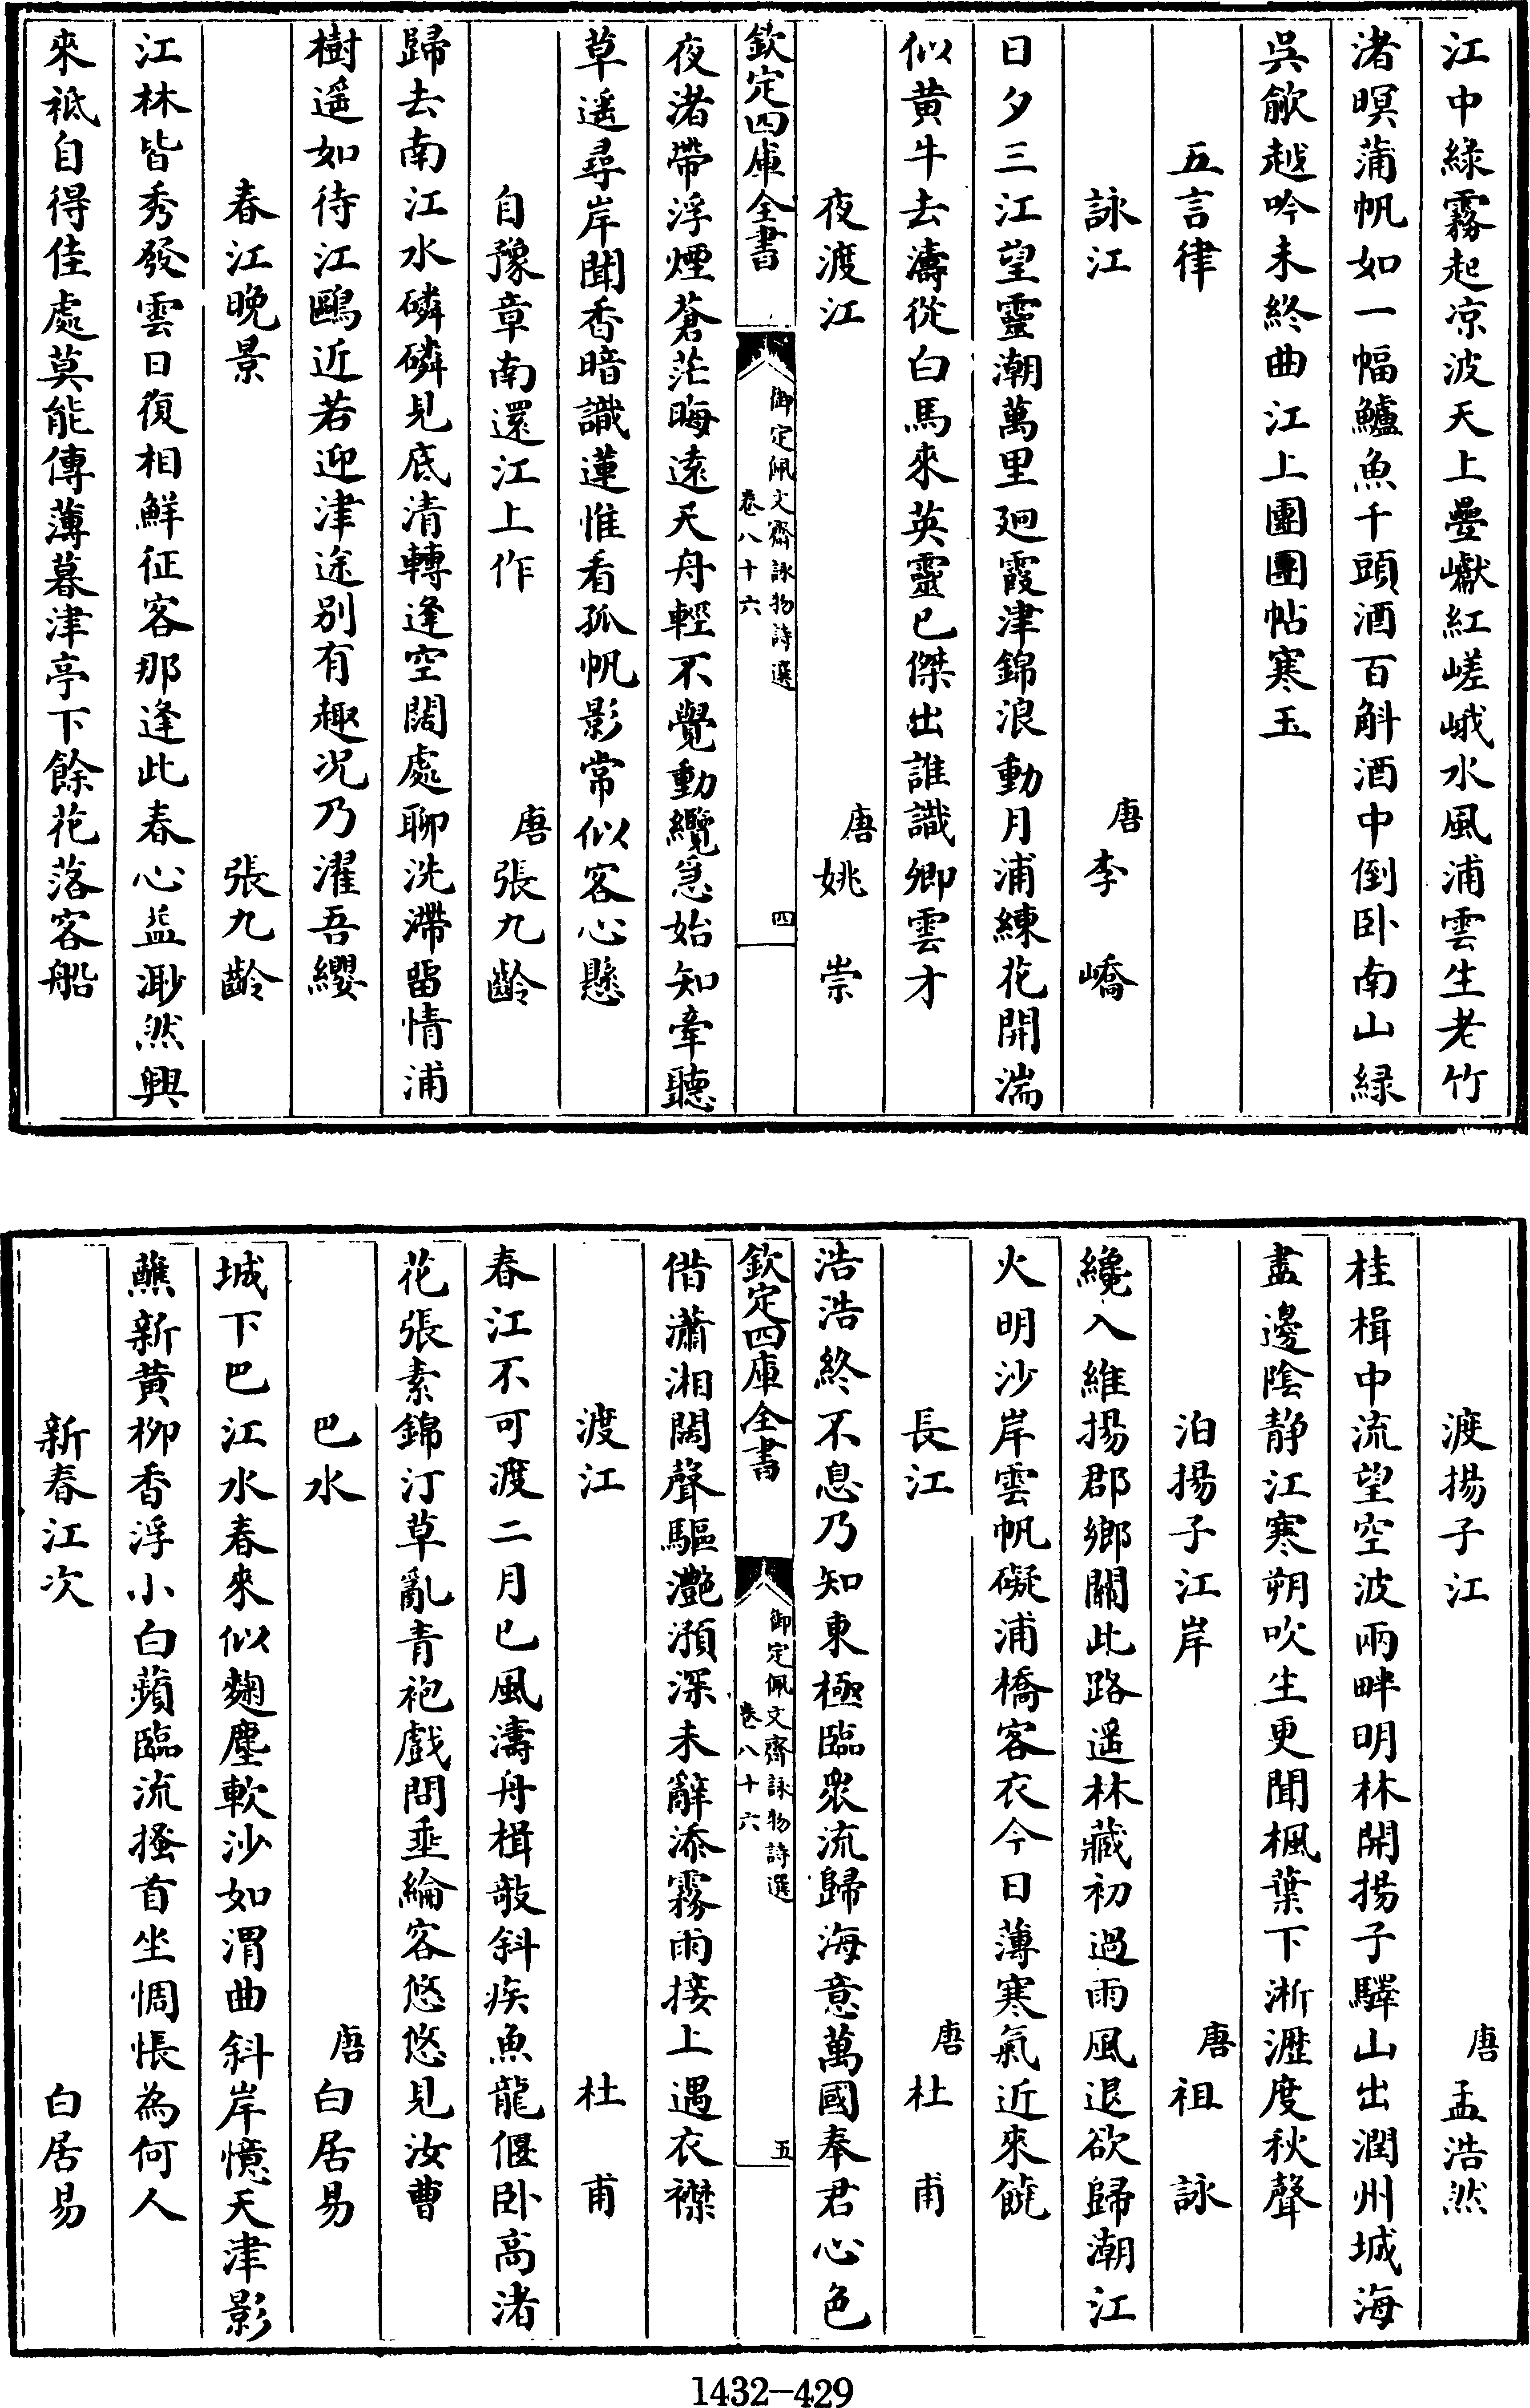 江中緑霧起凉波天上疊巘紅嵯峨水風浦雲生老竹
渚暝蒲帆如一幅鱸魚千頭酒百斛酒中倒卧南山緑
吳歈越吟未終曲江上團團帖寒玉
五言律
詠江 唐李嶠
日夕三江望靈潮萬里廻霞津錦浪動月浦練花開湍
似黄牛去濤從白馬來英靈已傑出誰識卿雲才
夜渡江 唐姚崇
欽定四庫全書 御定佩文齋詠物詩選 卷八十六 四
夜渚帶浮煙蒼茫晦遠天舟輕不覺動纜急始知牽聽
草遥尋岸聞香暗識蓮惟看孤帆影常似客心懸
自豫章南還江上作 唐張九齡
歸去南江水磷磷見底清轉逢空闊處聊洗滯留情浦
樹遥如待江鷗近若迎津途别有趣况乃濯吾纓
春江晚景 張九齡
江林皆秀發雲日復相鮮征客那逢此春心益渺然興
來祗自得佳處莫能傳薄暮津亭下餘花落客船
渡揚子江 唐孟浩然
桂楫中流望空波兩畔明林開揚子驛山出潤州城海
盡邊陰静江寒朔吹生更聞楓葉下淅瀝度秋聲
泊揚子江岸 唐祖詠
纔入維揚郡鄉關此路遥林藏初過雨風退欲歸潮江
火明沙岸雲帆礙浦橋客衣今日薄寒氣近來饒
長江 唐杜甫
浩浩終不息乃知東極臨衆流歸海意萬國奉君心色
欽定四庫全書 御定佩文齋詠物詩選 卷八十六 五
借瀟湘闊聲驅灧澦深未辭添霧雨接上遇衣襟
渡江 杜甫
春江不可渡二月已風濤舟楫敧斜疾魚龍偃卧高渚
花張素錦汀草亂青袍戲問垂綸客悠悠見汝曹
巴水 唐白居易
城下巴江水春來似麴塵軟沙如渭曲斜岸憶天津影
蘸新黄柳香浮小白蘋臨流搔首坐惆悵為何人
新春江次 白居易
1432-429